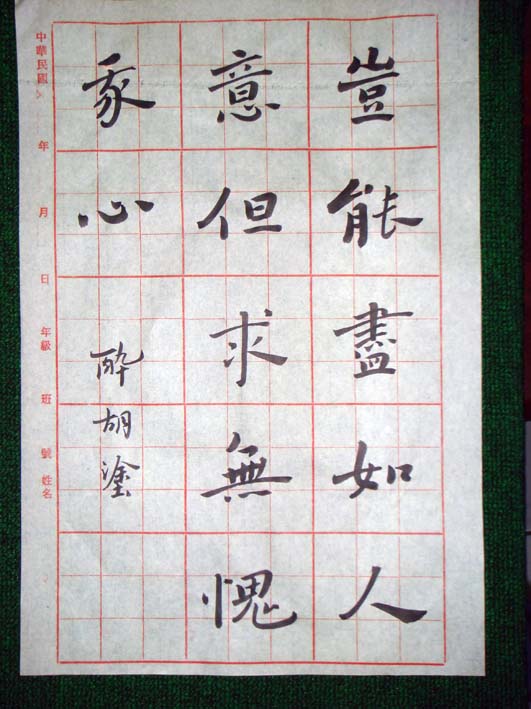 豈能盡如人
意但求無愧
我心
醉胡塗
中華民國 年 月 日 年級 班 號 姓名